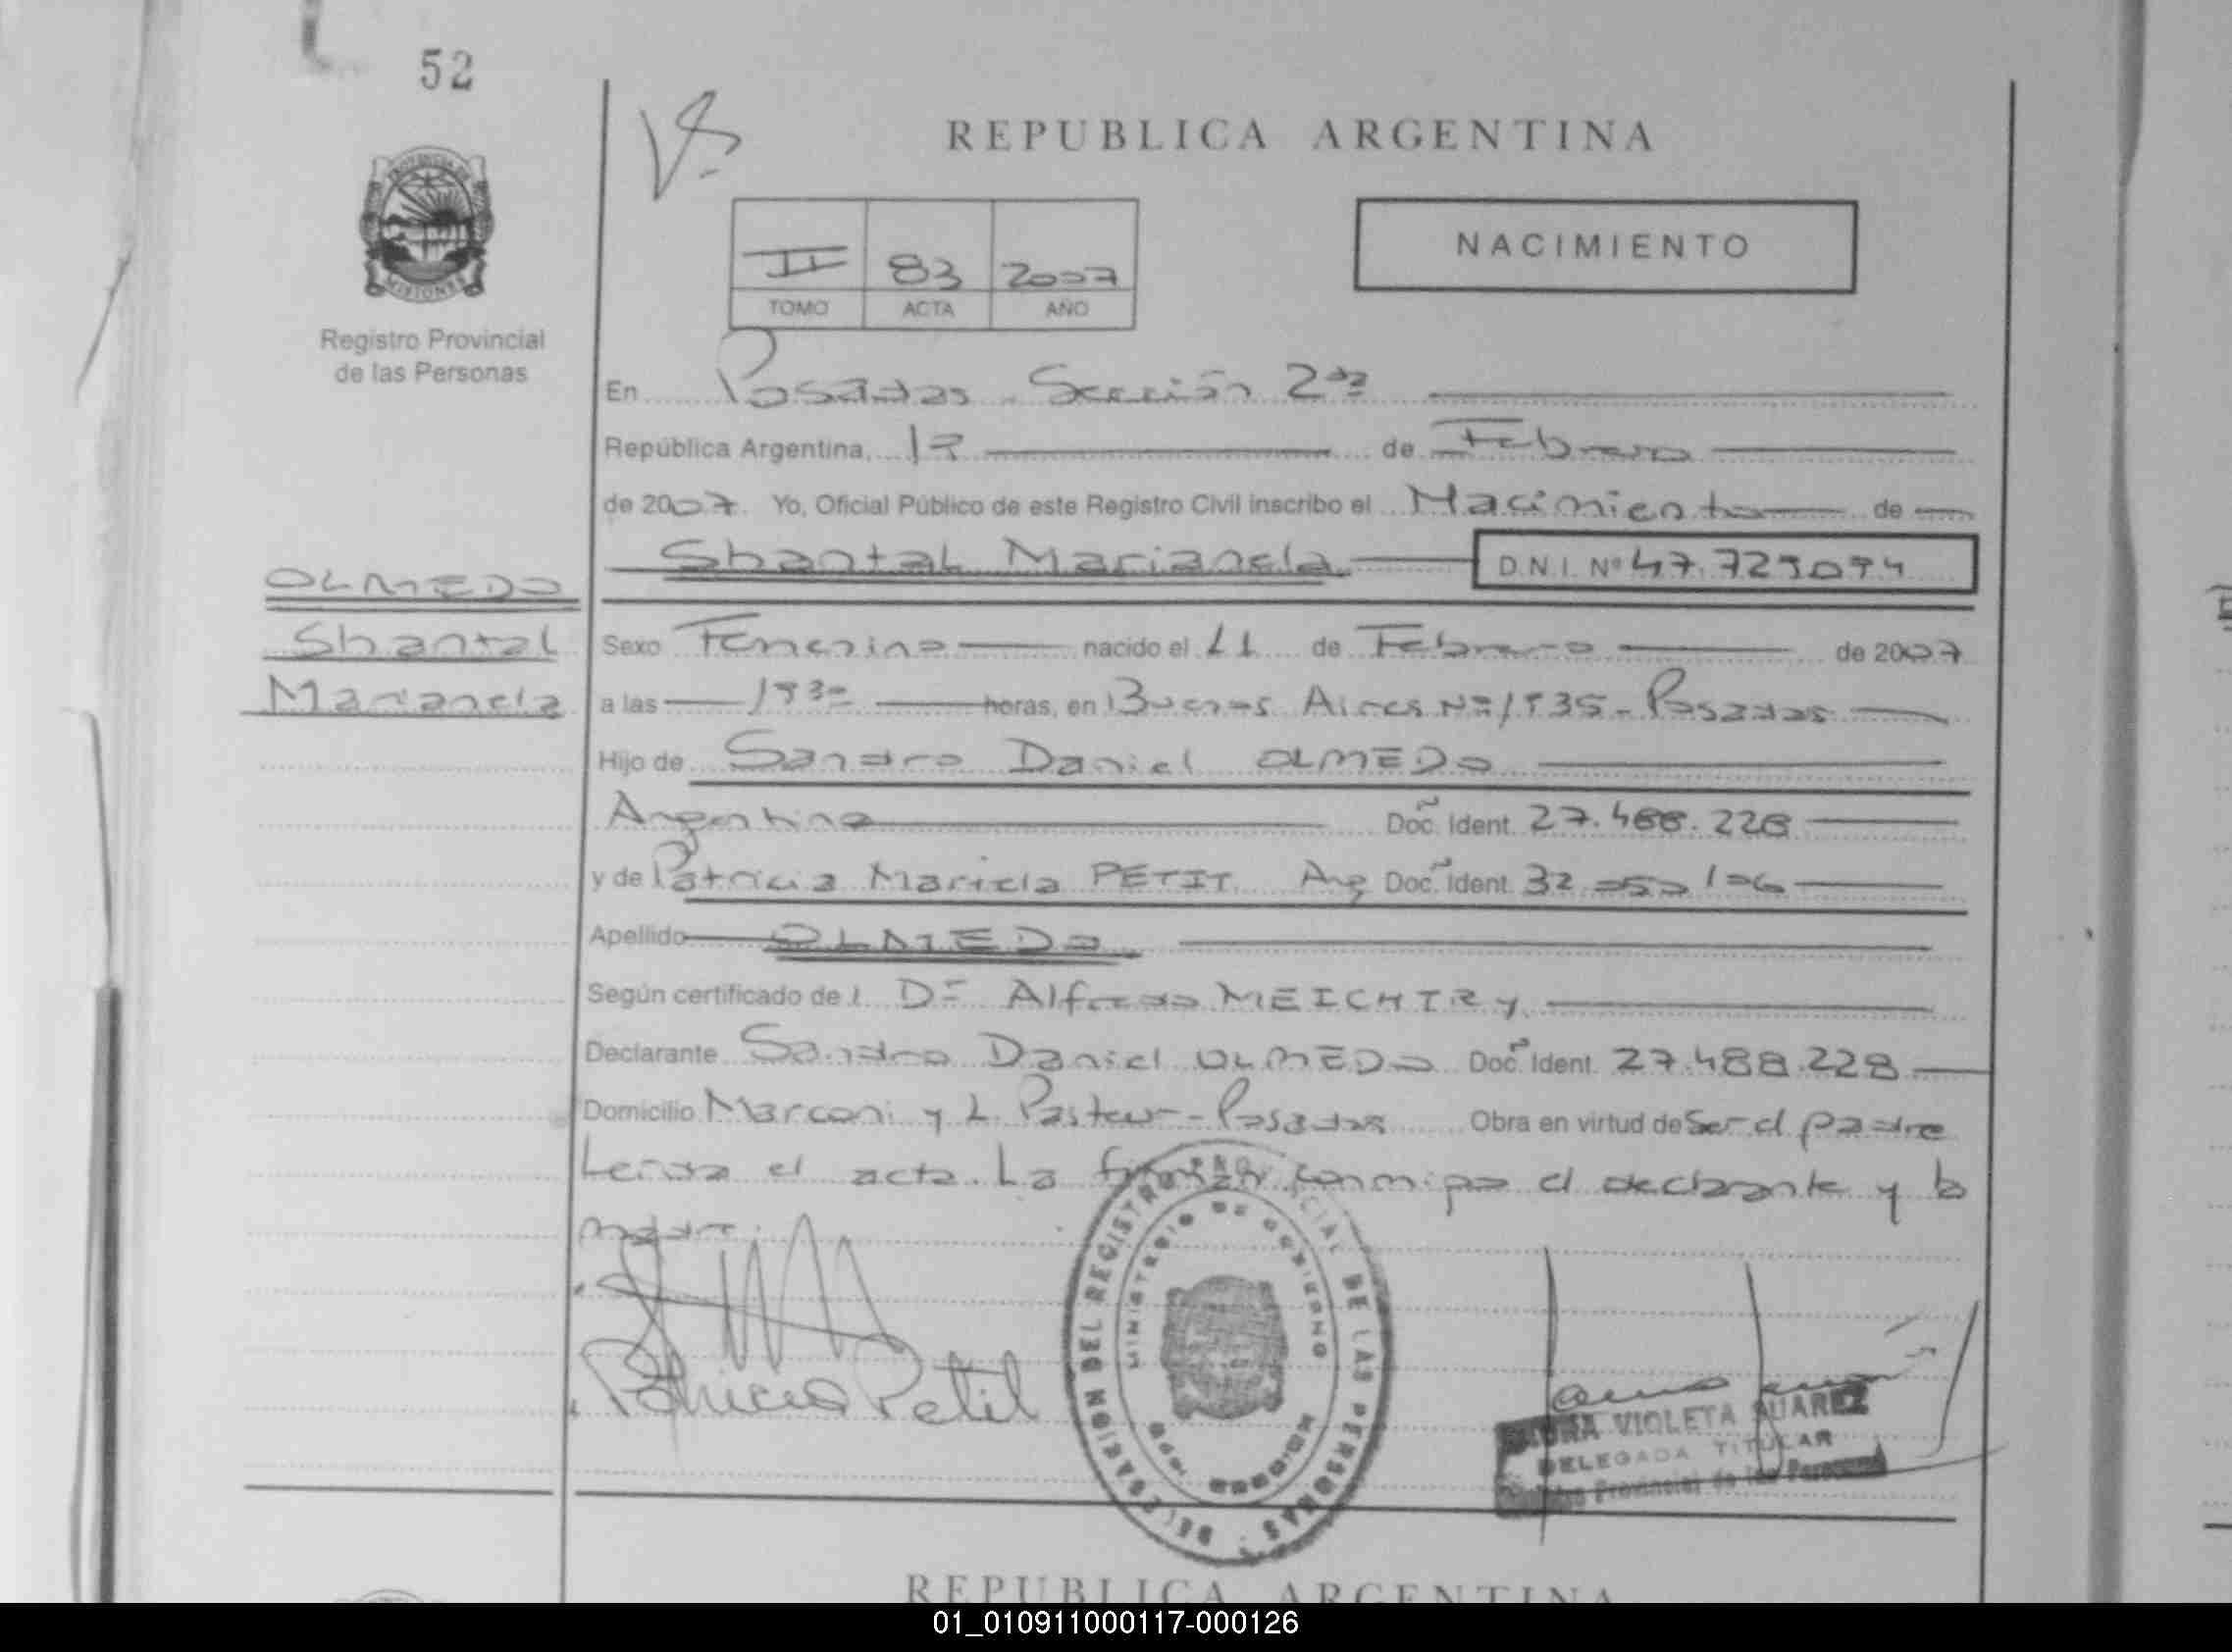 52
REPUBLICA ARGENTINA
PROVINCIA DE
MISIONES
Registro Provincial
de las Personas
II 83 2007
TOMO ACTA AÑO
NACIMIENTO
En Posadas - Sección 2da
República Argentina, 17 de Febrero
de 2007. Yo, Oficial Público de este Registro Civil inscribo el Nacimiento de
Shantal Marianela D.N.I. Nº 47.729094
OLMEDO
Shantal
Marianela
Sexo Femenino nacido el 11 de Febrero de 2007
a las 1930 horas, en Buenos Aires Nº 1935 - Posadas
Hijo de Sandro Daniel OLMEDO
Argentino Doc. Ident. 27.488.228
y de Patricia Mariela PETIT Arg Doc. Ident. 32.050106
Apellido OLMEDO
Según certificado del Dr Alfredo MEICHTRY
Declarante Sandro Daniel OLMEDO Doc. Ident. 27.488.228
Domicilio Marconi y L. Pasteur - Posadas Obra en virtud de Ser el padre
Leida el acta. La firman conmigo el declarante y la
madre.
Patricia Petit
DELEGACION DEL REGISTRO PROVINCIAL DE LAS PERSONAS
MINISTERIO DE GOBIERNO
VIOLETA SUAREZ
DELEGADA TITULAR
Provincial de las Personas
REPUBLICA ARGENTINA
01_010911000117-000126